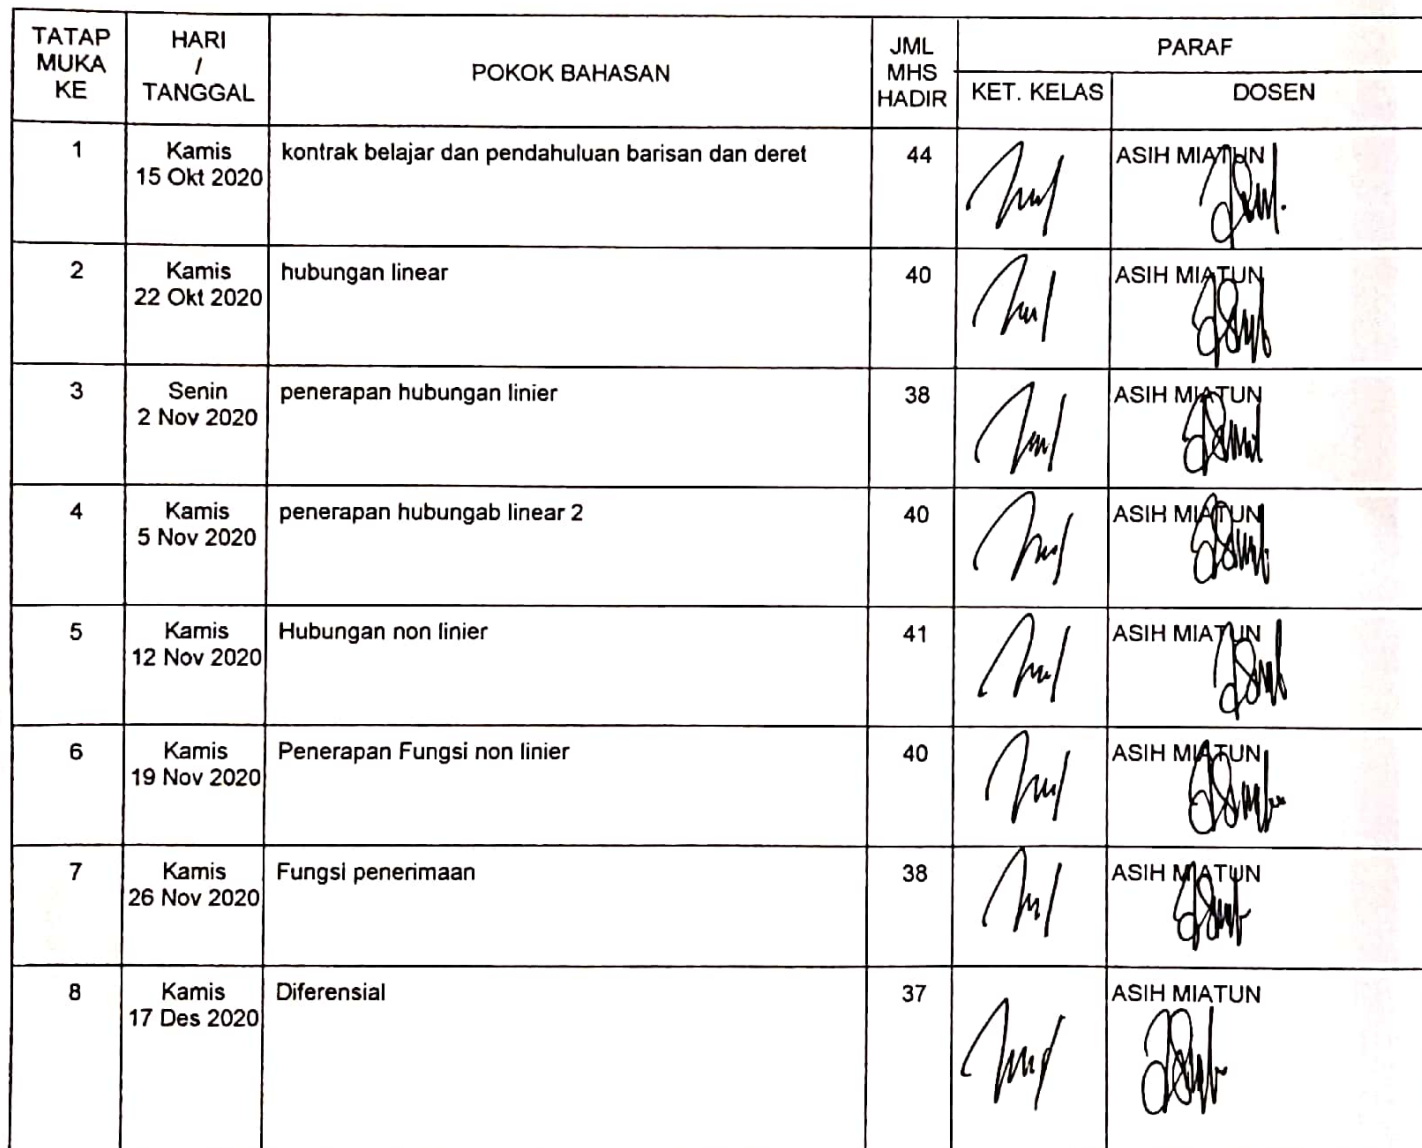 TATAP
MUKA
KE
HARI
/
TANGGAL
POKOK BAHASAN
JML
MHS
HADIR
PARAF
KET. KELAS
DOSEN
1
Kamis
15 Okt 2020
kontrak belajar dan pendahuluan barisan dan deret
44
ASIH MIATUN
2
Kamis
22 Okt 2020
hubungan linear
40
ASIH MIATUN
3
Senin
2 Nov 2020
penerapan hubungan linier
38
ASIH MIATUN
4
Kamis
5 Nov 2020
penerapan hubungab linear 2
40
ASIH MIATUN
5
Kamis
12 Nov 2020
Hubungan non linier
41
ASIH MIATUN
6
Kamis
19 Nov 2020
Penerapan Fungsi non linier
40
ASIH MIATUN
7
Kamis
26 Nov 2020
Fungsi penerimaan
38
ASIH MIATUN
8
Kamis
17 Des 2020
Diferensial
37
ASIH MIATUN